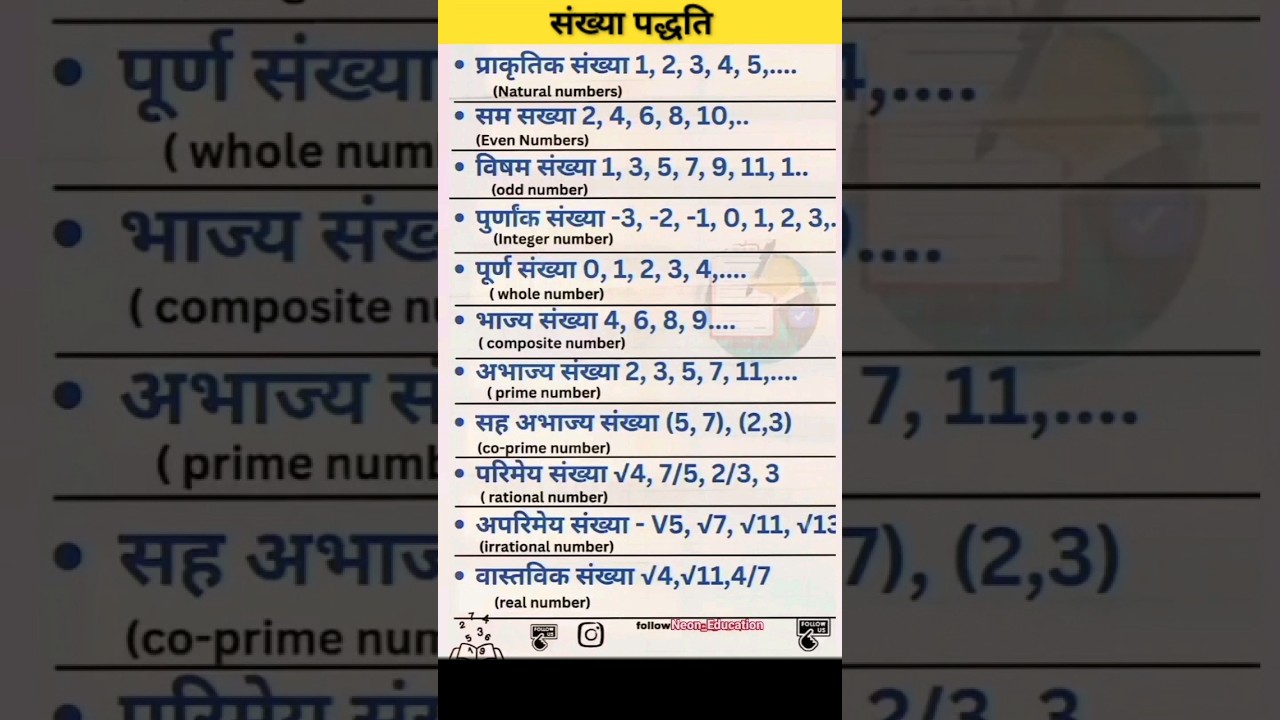 संख्या पद्धति
• प्राकृतिक संख्या 1, 2, 3, 4, 5,....
(Natural numbers)
• सम सख्या 2, 4, 6, 8, 10,..
(Even Numbers)
• विषम संख्या 1, 3, 5, 7, 9, 11, 1..
(odd number)
• पुर्णांक संख्या -3, -2, -1, 0, 1, 2, 3,.
(Integer number)
• पूर्ण संख्या 0, 1, 2, 3, 4,....
( whole number)
• भाज्य संख्या 4, 6, 8, 9....
( composite number)
• अभाज्य संख्या 2, 3, 5, 7, 11,....
( prime number)
• सह अभाज्य संख्या (5, 7), (2,3)
(co-prime number)
• परिमेय संख्या √4, 7/5, 2/3, 3
( rational number)
• अपरिमेय संख्या - V5, √7, √11, √13
(irrational number)
• वास्तविक संख्या √4,√11,4/7
(real number)
follow Neon_Education
FOLLOW US
FOLLOW US